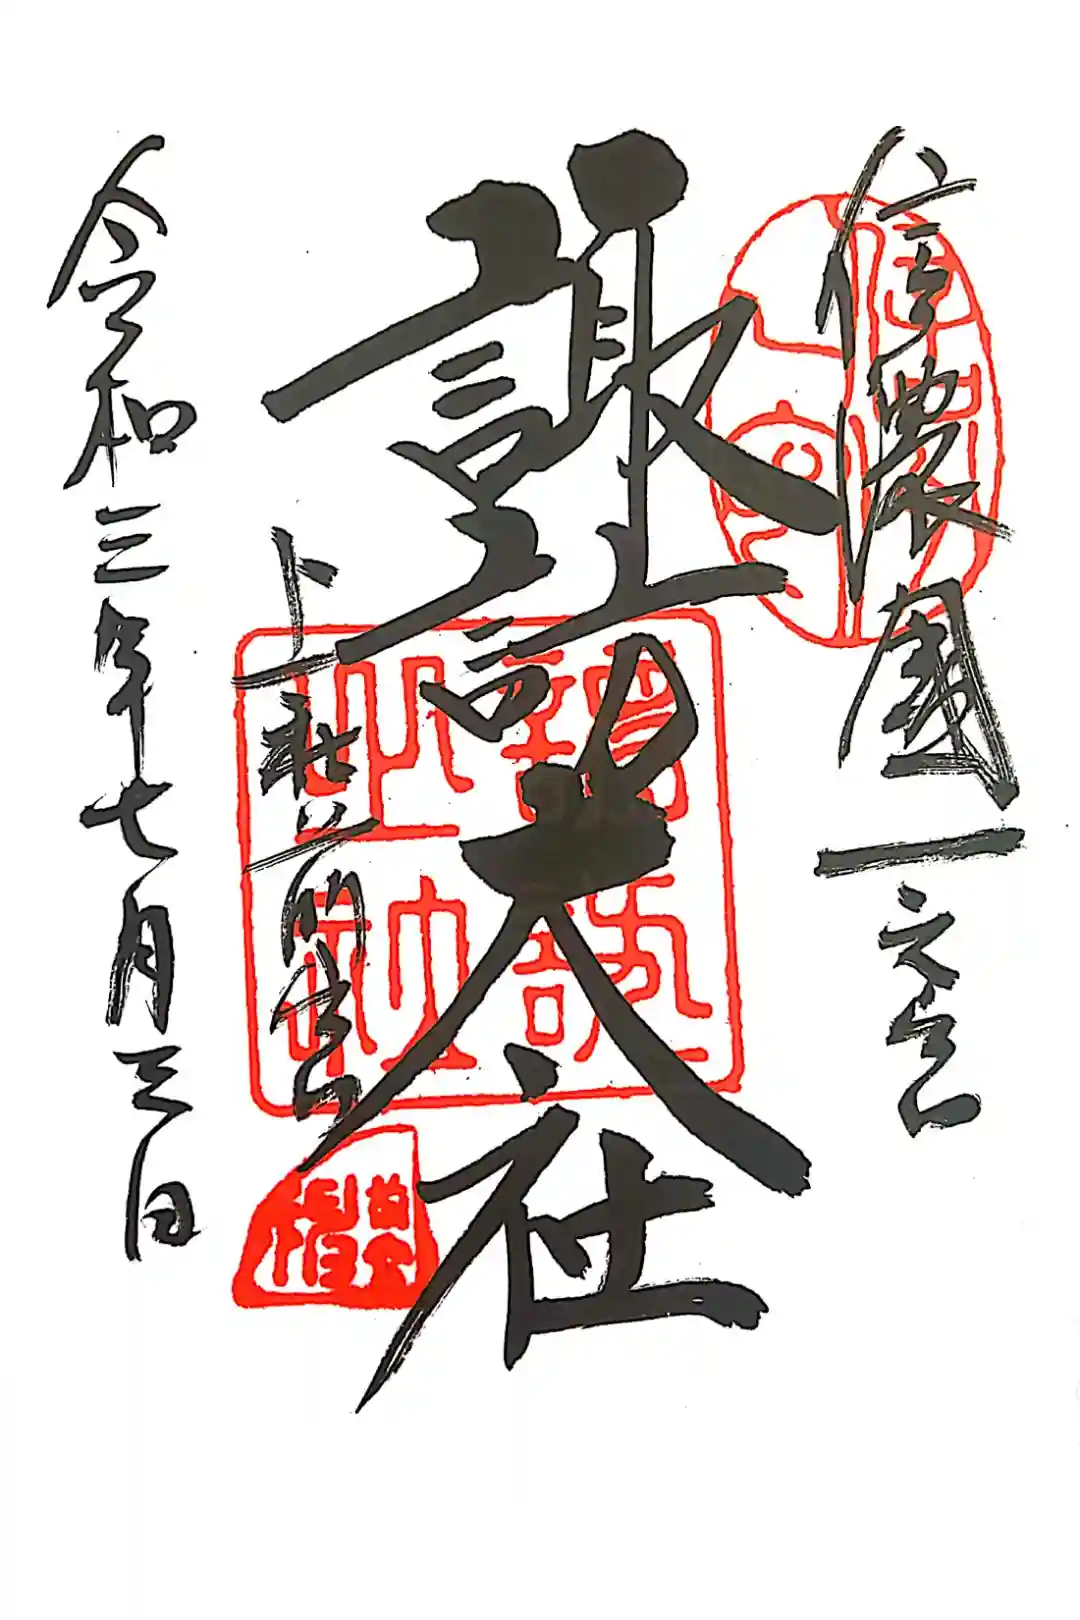 信濃國一之宮
諏訪大社
上社前宮
令和三年七月三日